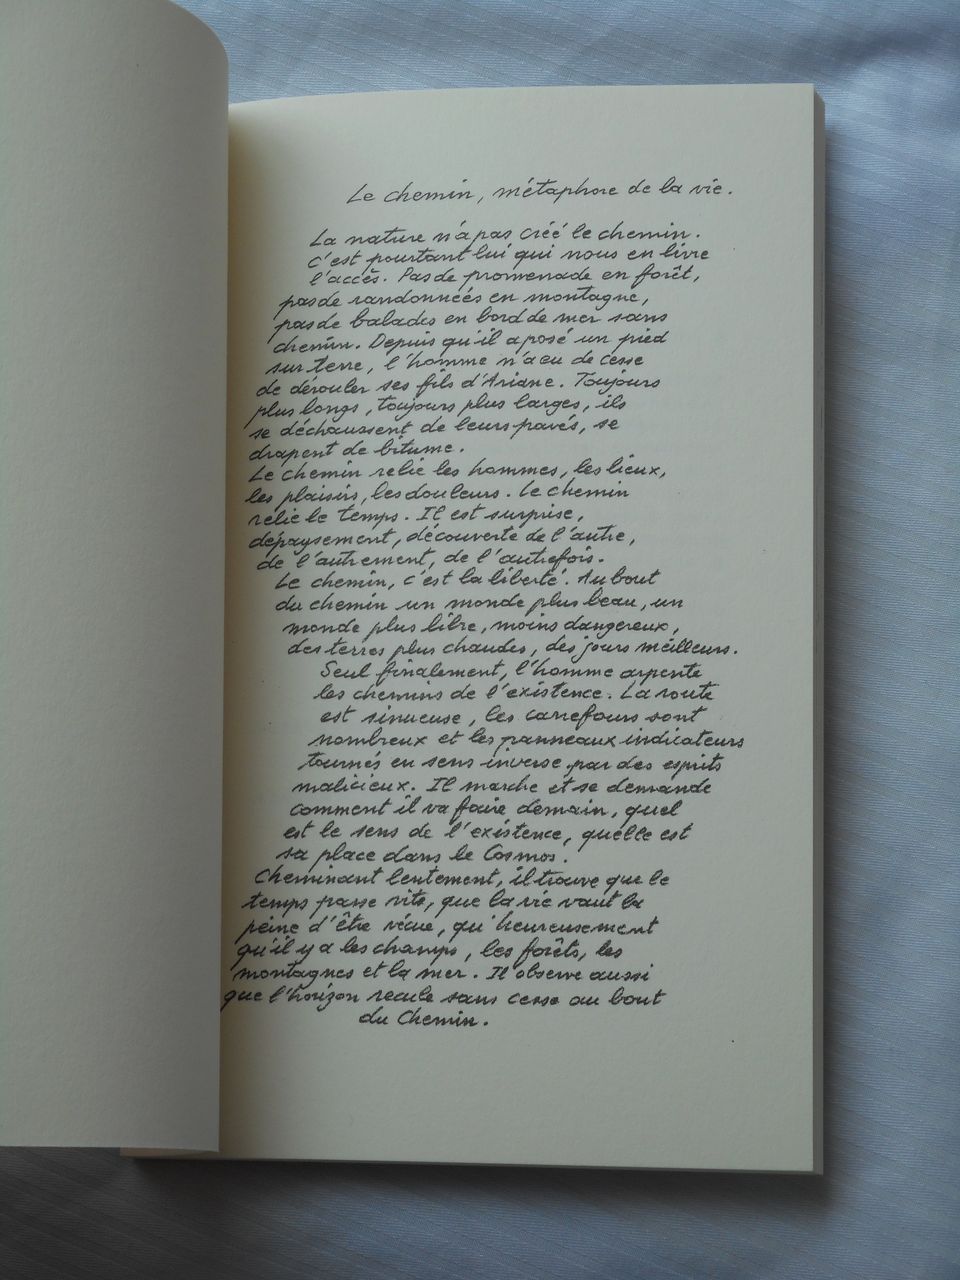 Le chemin, métaphore de la vie.
La nature n'a pas créé le chemin.
C'est pourtant lui qui nous en livre
l'accès. Pas de promenade en forêt,
pas de randonnées en montagne,
pas de balades en bord de mer sans
chemin. Depuis qu'il a posé un pied
sur terre, l'homme n'a eu de cesse
de dérouler ses fils d'Ariane. Toujours
plus longs, toujours plus larges, ils
se déchaussent de leurs pavés, se
drapent de bitume.
Le chemin relie les hommes, les lieux,
les plaisirs, les douleurs. Le chemin
relie le temps. Il est surprise,
dépaysement, découverte de l'autre,
de l'autrement, de l'autrefois.
Le chemin, c'est la liberté. Au bout
du chemin un monde plus beau, un
monde plus libre, moins dangereux,
des terres plus chaudes, des jours meilleurs.
Seul finalement, l'homme arpente
les chemins de l'existence. La route
est sinueuse, les carrefours sont
nombreux et les panneaux indicateurs
tournés en sens inverse par des esprits
malicieux. Il marche et se demande
comment il va faire demain, quel
est le sens de l'existence, quelle est
sa place dans le Cosmos.
Cheminant lentement, il trouve que le
temps passe vite, que la vie vaut la
peine d'être vécue, qu'heureusement
qu'il y a les champs, les forêts, les
montagnes et la mer. Il observe aussi
que l'horizon recule sans cesse au bout
du Chemin.